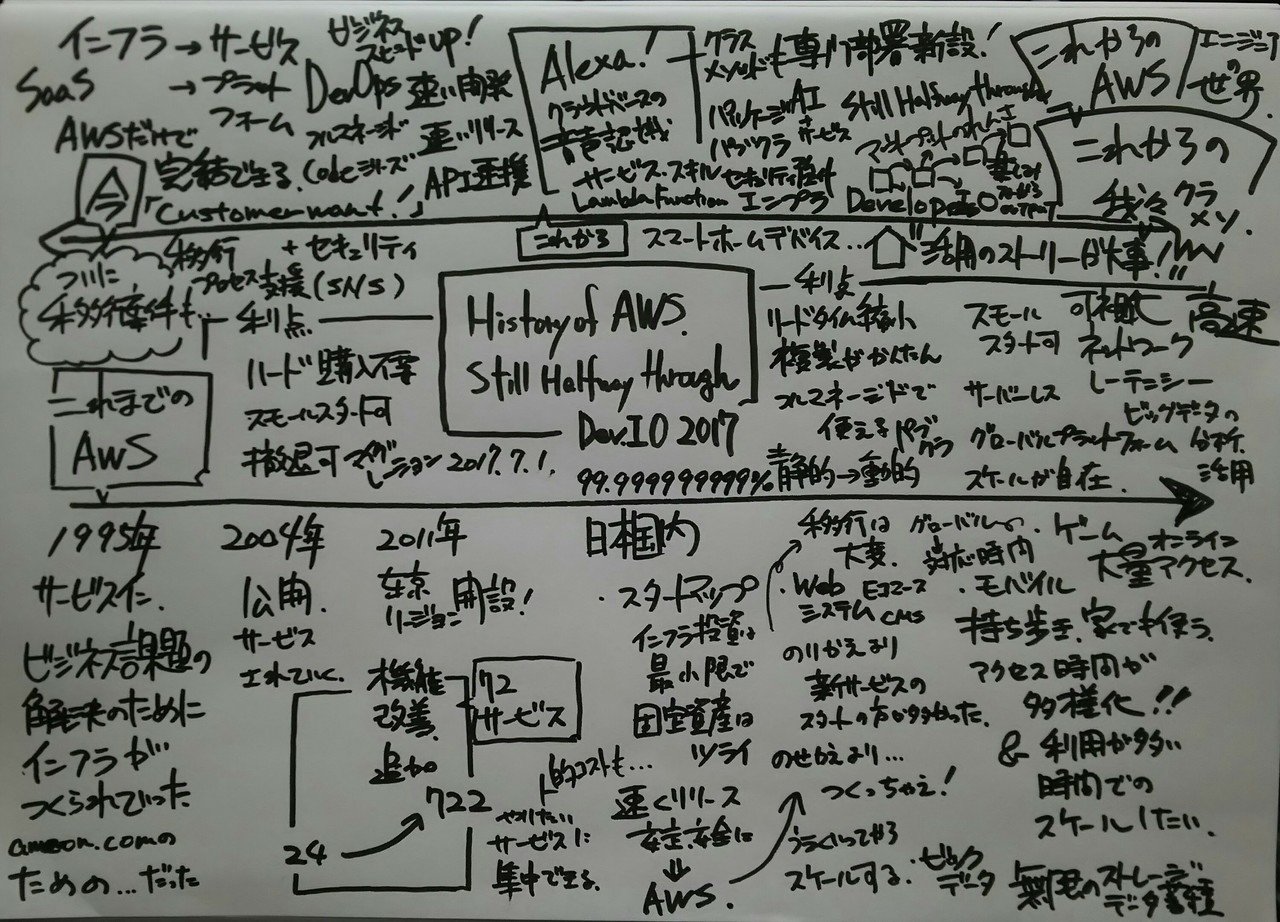 インフラ→サービス
SaaS
→プラット
フォーム
ビジネス
スピードUP!
DevOps
速い開発
フルマネージド
速いリリース
Codeシリーズ
API連携
AWSだけで
完結できる、
「Customer want!」
今
Alexa!
クラウドベースの
音声認識
サービス・スキル
Lambda Function
これから
クラス
メソッドも専門部署新設!
パッケージ
AI
+サービス
パブクラ
セキュリティ要件
エンプラ
Still Halfway through
マネ
Developers IO
これからの
AWS
エンジニア
の
世界
これからの
我々
クラ
メソ
スマートホームデバイス…
"活用のストーリーが大事!"
ついに
移行案件も…
移行
プロセス支援
+セキュリティ
(SNS)
利点
ハード購入不要
スモールスタート可
撤退可
マイグ
レーション
2017.7.1.
History of AWS.
Still Halfway through
Dev.IO 2017
99.999999999%
利点
リードタイム縮小
複製がかんたん
フルマネージドで
使える
パブ
クラ
静的→動的
スモール
スタート可
サーバーレス
グローバルプラットフォーム
スケールが自在.
可視化
高速
ネットワーク
レーテンシー
ビッグデータの
分析.
活用
これまでの
AWS
1995年
サービスイン.
ビジネス課題の
解決のために
インフラが
つくられていった
amazon.comの
ための…だった
2004年
公開.
サービス
されていく.
2011年
東京
リージョン
開設!
機能
改善.
追加
72
サービス
24
722
日本国内
・スタートアップ
インフラ投資は
最小限で
固定資産は
ツライ
的コストも…
やりたい
サービスに
集中できる.
速くリリース
安定、安全に
⇓
AWS.
移行は
大変.
・Web
システム
Eコマース
CMS
のりかえより
新サービスの
スタートの方が多かった.
のせかえより…
つくっちゃえ!
スケールする.
・ビック
データ
グローバルの
対応時間
・ゲーム
オンライン
大量アクセス.
・モバイル
持ち歩き、家でも使う.
アクセス時間が
多様化!!
&利用が多い
時間での
スケールしたい.
無限のストレージ
データ蓄積